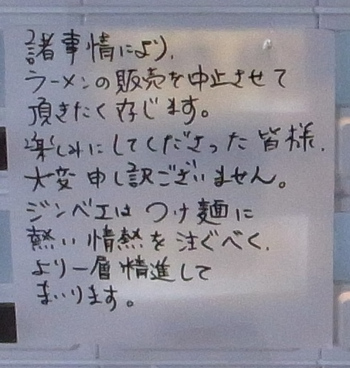 諸事情により、
ラーメンの販売を中止させて
頂きたく存じます。
楽しみにしてくださった皆様、
大変申し訳ございません。
ジンベエはつけ麺に
熱い情熱を注ぐべく、
より一層情進して
まいります。